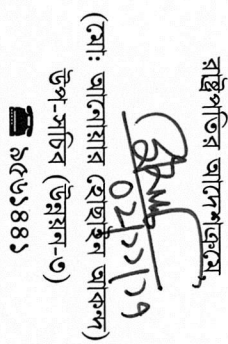 রাষ্ট্রপতির আদেশক্রমে,
০২/১১/১৭
(মোঃ আনোয়ার হোছাইন আকন্দ)
উপ-সচিব (উন্নয়ন-৩)
☎ ৯৫৬১৪৪১